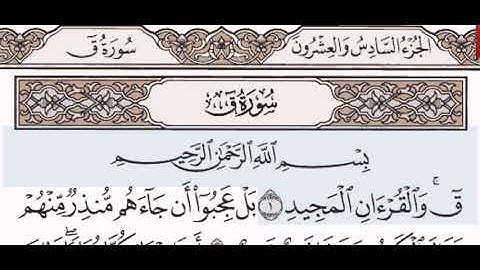 الجُزْءُ السَّادِسُ وَالعِشْرُونَ
سُورَةُ قٓ
سُورَةُ قٓ
بِسْمِ اللَّهِ الرَّحْمَٰنِ الرَّحِيمِ
قٓۚ وَالْقُرْءَانِ الْمَجِيدِ ١ بَلْ عَجِبُوا۟ أَن جَآءَهُم مُّنذِرٌ مِّنْهُمْ